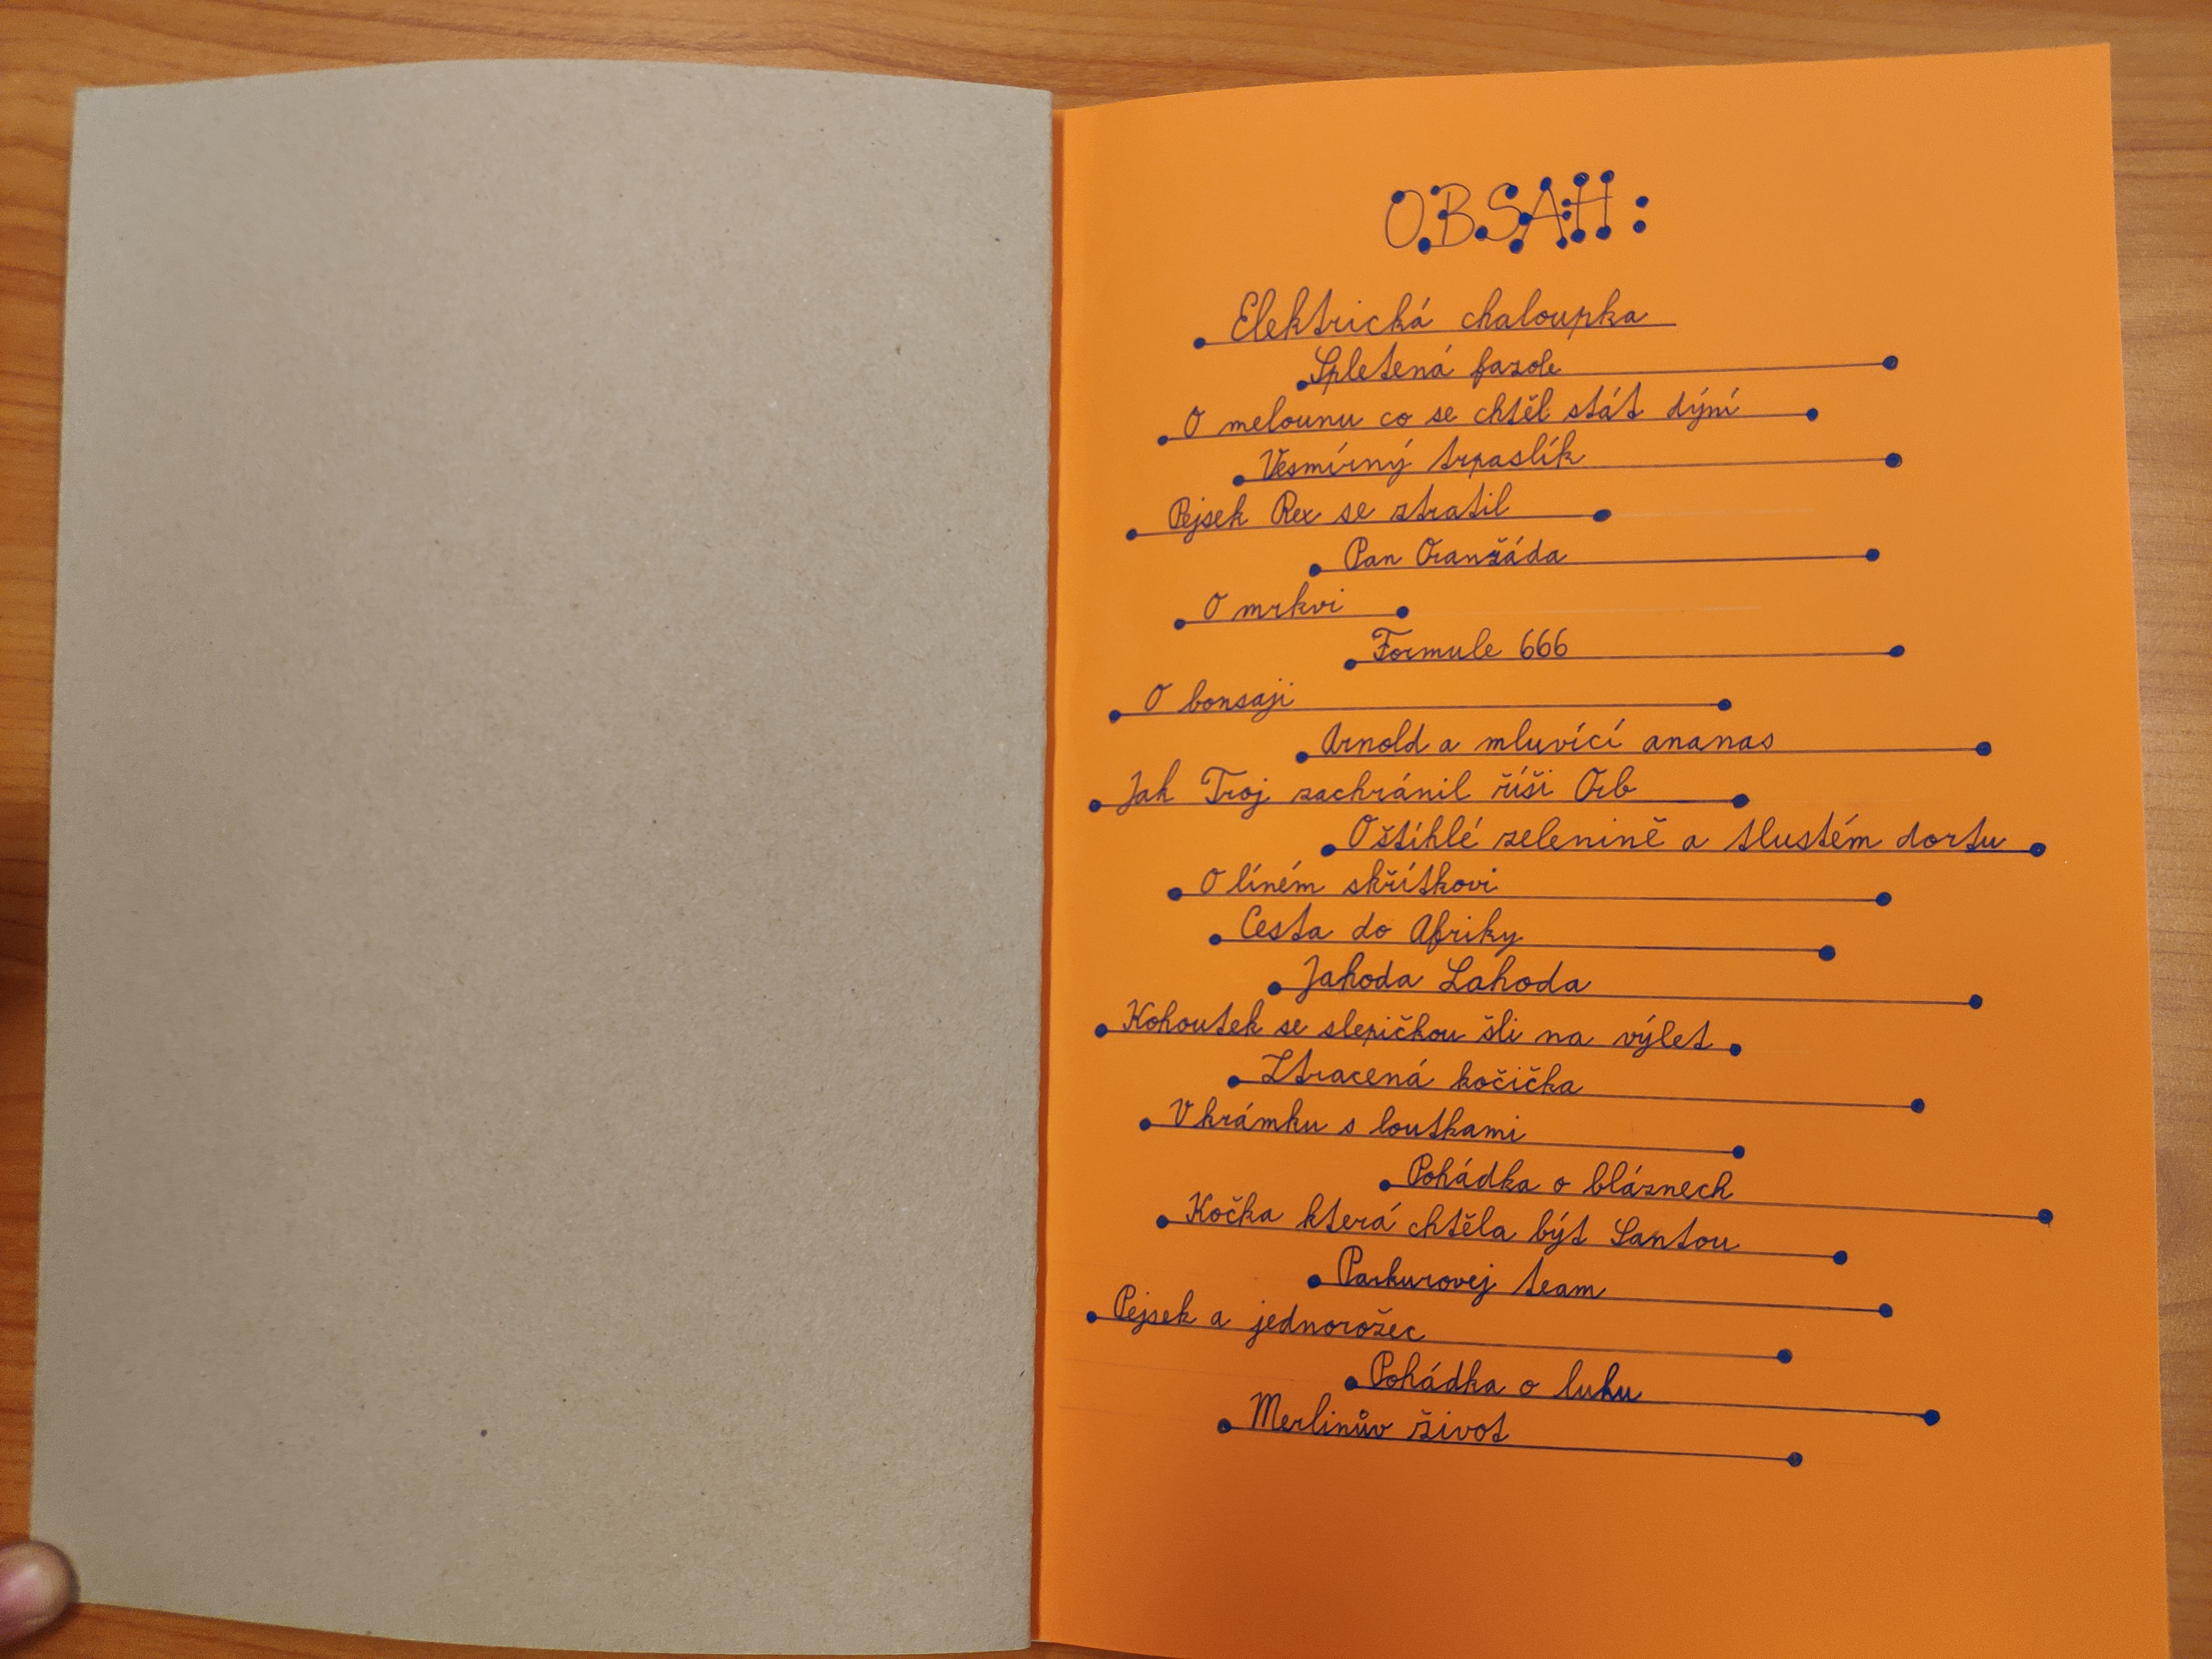 OBSAH:
Elektrická chaloupka
Spletená fazole
O melounu co se chtěl stát dýní
Vesmírný trpaslík
Pejsek Rex se ztratil
Pan Oranžáda
O mrkvi
Formule 666
O bonsaji
Arnold a mluvící ananas
Jak Troj zachránil říši Orb
O štíhlé zelenině a tlustém dortu
O líném skřítkovi
Cesta do Afriky
Jahoda Lahoda
Kohoutek se slepičkou šli na výlet
Ztracená kočička
V krámku s loutkami
Pohádka o bláznech
Kočka která chtěla být Santou
Parkurovej team
Pejsek a jednorožec
Pohádka o luku
Merlinův život